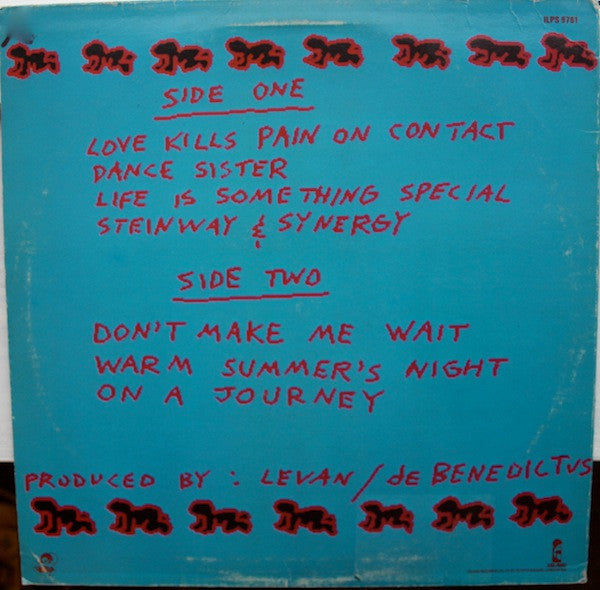 ILPS 9761
SIDE ONE
LOVE KILLS PAIN ON CONTACT
DANCE SISTER
LIFE IS SOMETHING SPECIAL
STEINWAY & SYNERGY
SIDE TWO
DON'T MAKE ME WAIT
WARM SUMMER'S NIGHT
ON A JOURNEY
PRODUCED BY : LEVAN / de BENEDICTUS
ISLAND